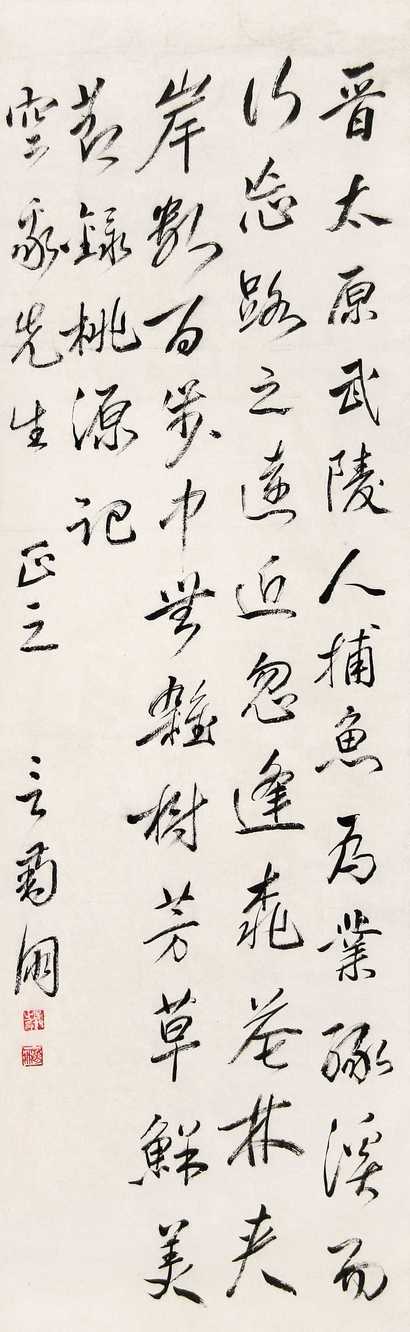 晋太原武陵人捕魚為業緣溪而
行忘路之遠近忽逢桃花林夾
岸數百步中無雜樹芳草鮮美
節錄桃源記
空先生 正之 言菊朋